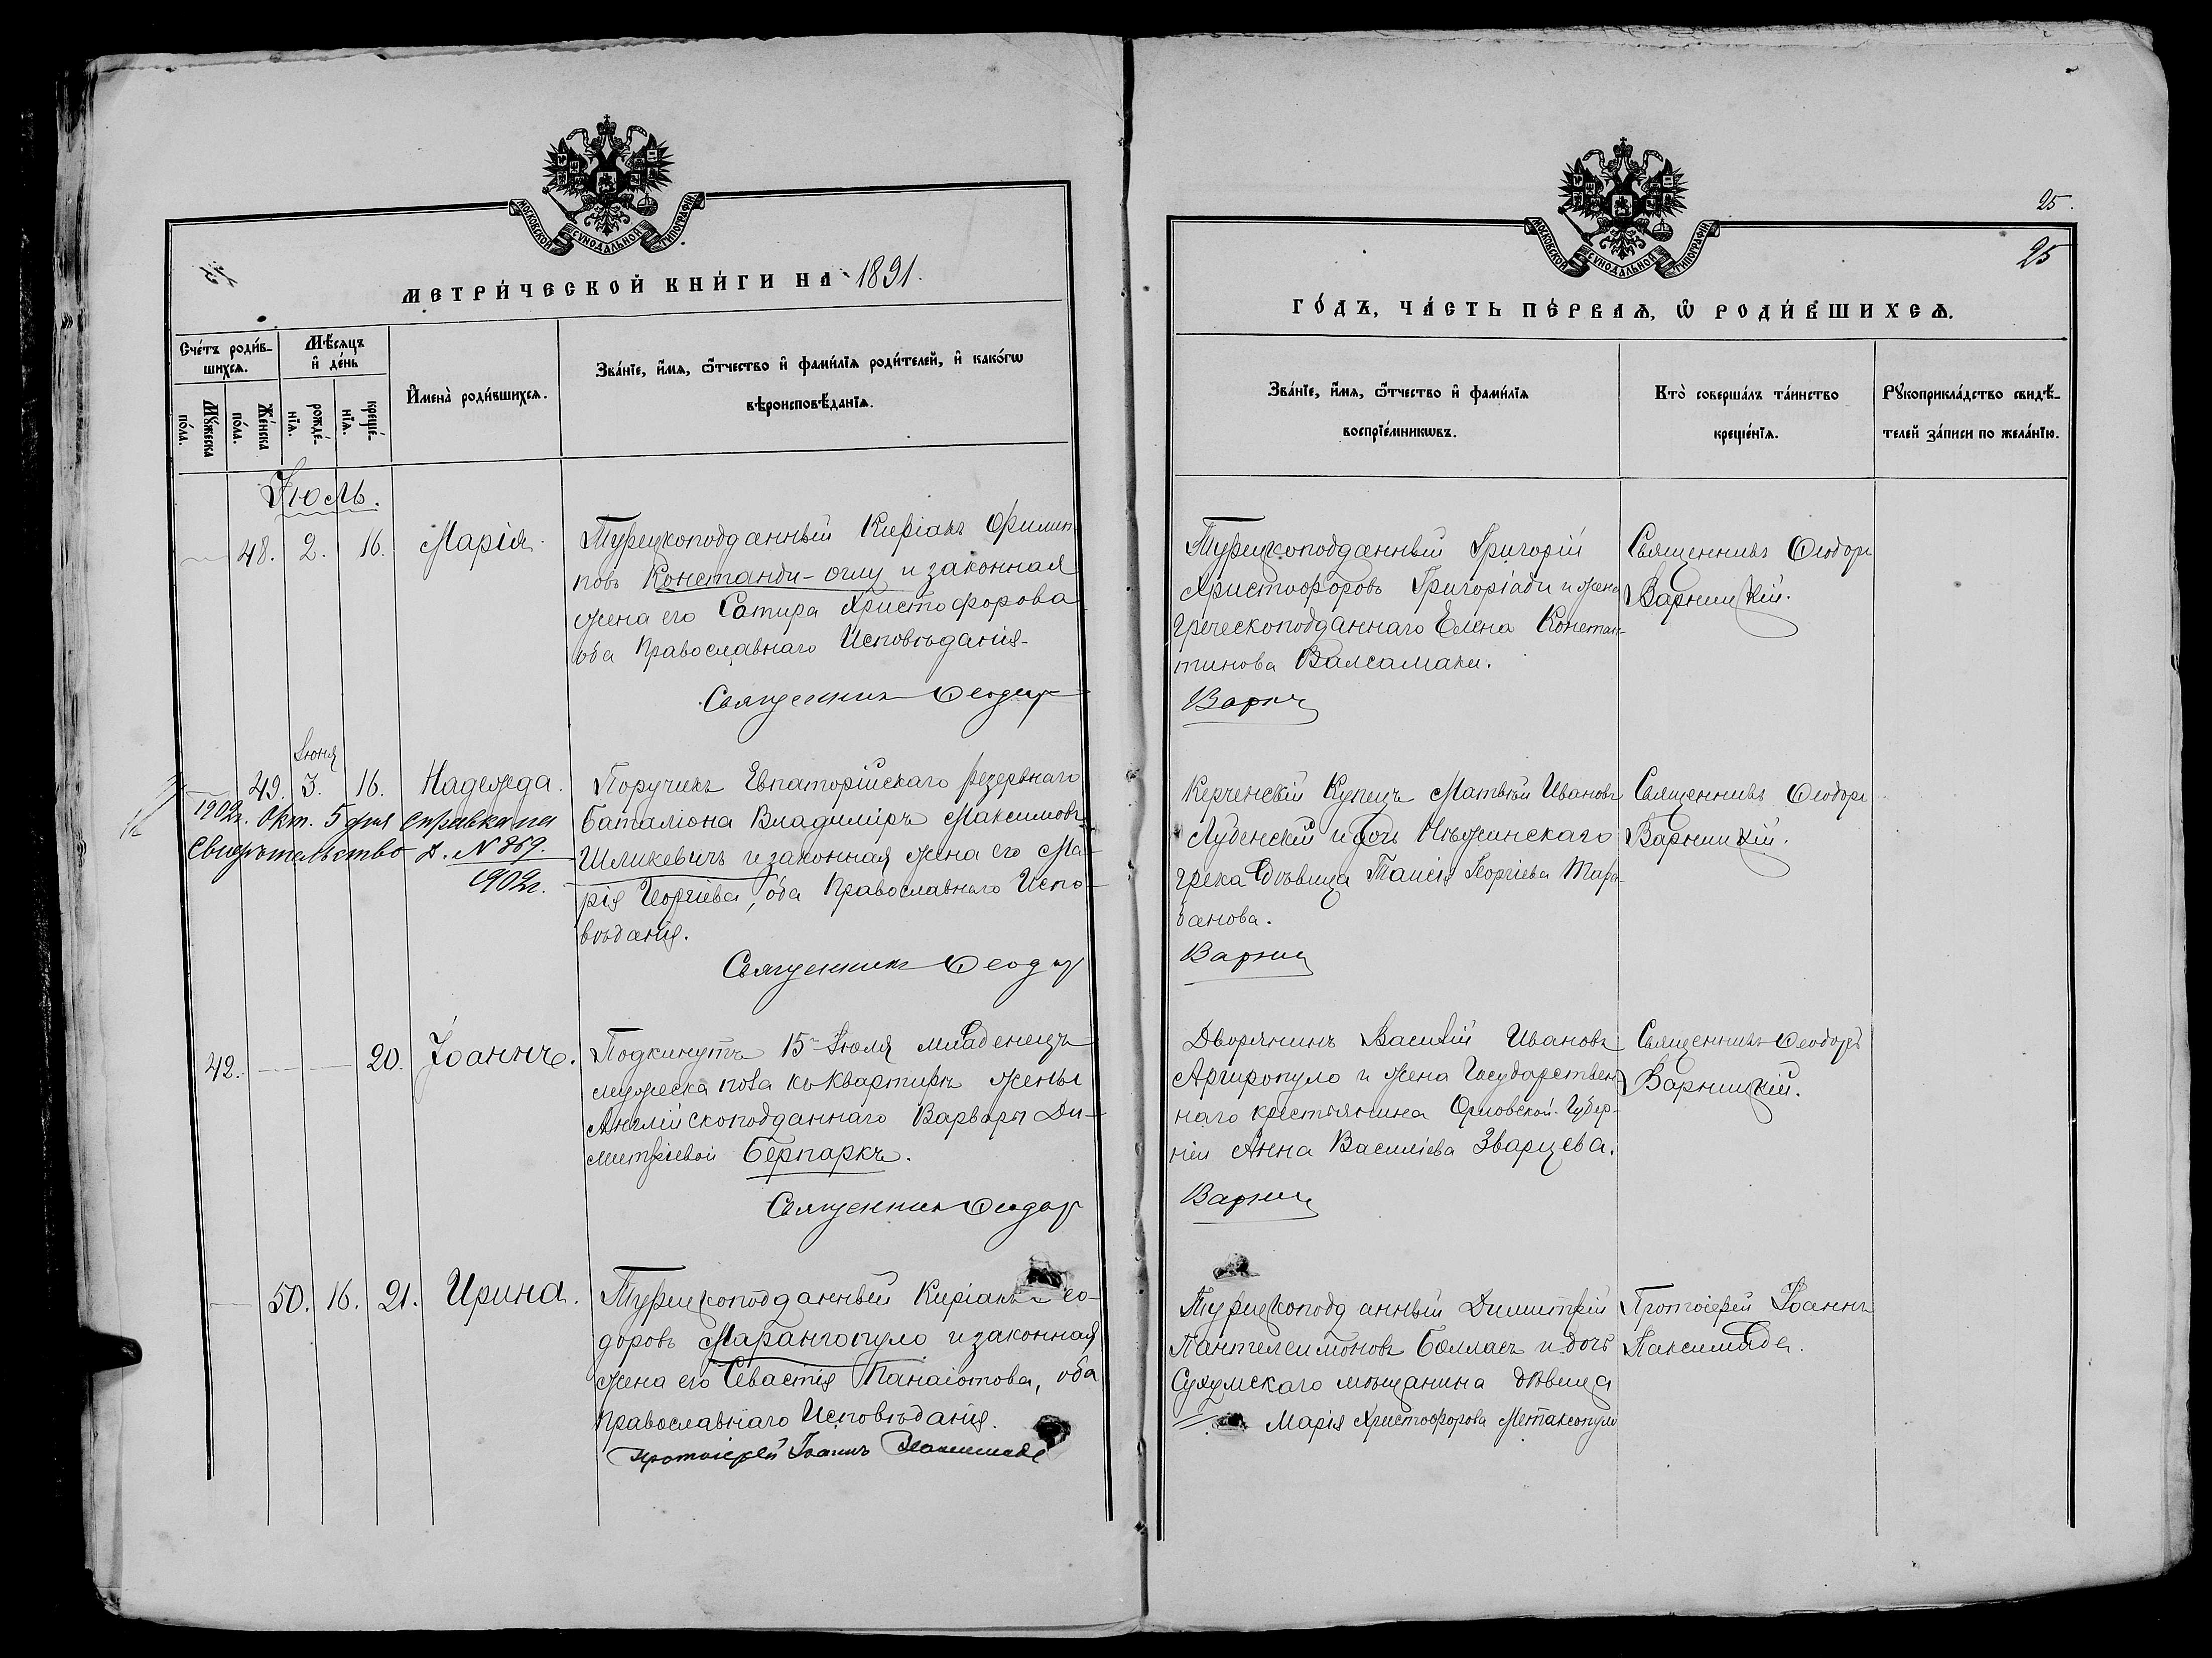 МОСКОВСКОЙ СѴНОДАЛЬНОЙ ТИПОГРАФІИ
МЕТРИ́ЧЕСКОЙ КНИ́ГИ НА 1891.
Сче́тъ роди́в-
шихсѧ.
Мѣ́сѧцъ
и҆ де́нь
Мꙋ́жеска
по́ла.
Же́нска
по́ла.
рожде́-
нїѧ.
креще́-
нїѧ.
И҆мена̀ роди́вшихсѧ.
Зва́нїе, и҆́мѧ, ѻ҆́тчество и҆ фами́лїѧ роди́телей, и҆ како́гѡ
вѣроисповѣ́данїѧ.
Іюль.
48. 2. 16. Марія.
Турецкоподданный Киріакъ Филип-
повъ Константи-оглу и законная
жена его Сатира Христофорова
оба Православнаго Исповѣданія.
Священникъ Ѳеодоръ
Іюня
49. 3. 16. Надежда.
1902г. Окт. 5 дня справка на
свидѣтельство д. № 859.
1902г.
Поручикъ Евпаторійскаго резервнаго
баталіона Владиміръ Максимовъ
Шликевичъ и законная жена его Ма-
рія Георгіева, оба Православнаго Испо-
вѣданія.
Священникъ Ѳеодоръ
42. 20. Іоаннъ.
Подкинутъ 15 Іюля младенецъ
мужеска пола къ квартирѣ жены
Англійскоподданнаго Варвары Ди-
митріевой Берпаркъ.
Священникъ Ѳеодоръ
50. 16. 21. Ирина.
Турецкоподданный Киріакъ Ѳео-
доровъ Марангопуло и законная
жена его Севастія Панаіотова, оба
Православнаго Исповѣданія.
Протоіерей Іоаннъ
25.
25
МОСКОВСКОЙ СѴНОДАЛЬНОЙ ТИПОГРАФІИ
ГО́ДЪ, ЧА́СТЬ ПЕ́РВАѦ, Ѡ҆ РОДИ́ВШИХСѦ.
Зва́нїе, и҆́мѧ, ѻ҆́тчество и҆ фами́лїѧ
воспрїе́мникѡвъ.
Кто̀ соверша́лъ та́инство
креще́нїѧ.
Рꙋкоприкла́дство свидѣ́-
телей за́писи по жела́нїю.
Турецкоподданный Григорій
Христофоровъ Григоріади и жена
греческоподданнаго Елена Констан-
тинова Валсамаки.
Варниц
Священникъ Ѳеодоръ
Варницкій.
Керченскій Купецъ Матвѣй Ивановъ
Лубенскій и дочь Нѣжинскаго
грека дѣвица Таисія Георгіева Тара-
банова.
Варниц
Священникъ Ѳеодоръ
Варницкій.
Дворянинъ Василій Ивановъ
Аргиропуло и жена Государствен-
наго крестьянина Орловской Губер-
ніи Анна Василіева Зварцева.
Варниц
Священникъ Ѳеодоръ
Варницкій.
Турецкоподданный Димитрій
Пантелеимоновъ Баллас и дочь
Сухумскаго мѣщанина дѣвица
Марія Христофорова Метаксопуло
Протоіерей Іоаннъ